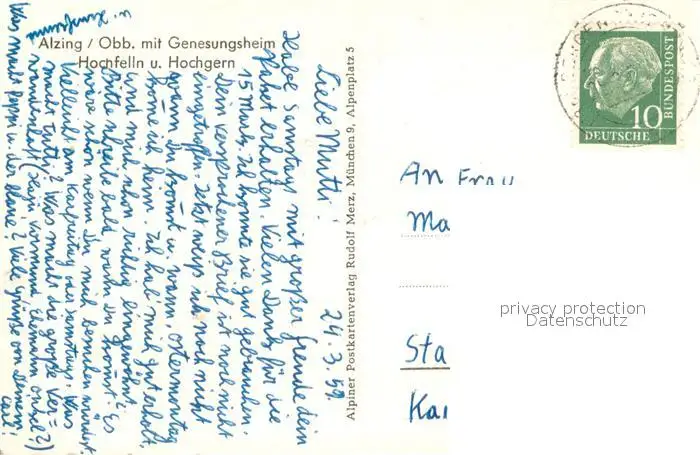 Alzing / Obb. mit Genesungsheim
Hochfelln u. Hochgern
Liebe Mutti! 24.3.59
Habe Samstag mit großer Freude dein
Paket erhalten. Vielen Dank für die
15 Mark. Ich konnte sie gut gebrauchen.
Dein versprochener Brief ist noch nicht
eingetroffen. Jetzt weiß ich noch nicht
wann Du kommst u. wann, Ostermontag
komme ich heim. Ich hab' mich gut erholt,
und mich schon richtig eingewöhnt.
Bitte schreibe bald wann Du kommst. Es
wäre schön wenn Du mich besuchen würdest.
Vielleicht am Karfreitag oder Samstag. Was
macht Tutti? Was macht die große Ver=
wandschaft
Was macht Pappi u. der
? Viele Grüße von Deinem
Alpiner Postkartenverlag Rudolf Merz, München 9, Alpenplatz 5
10
DEUTSCHE
BUNDESPOST
An Frau
Ma
Sta
Kar
privacy protection
Datenschutz